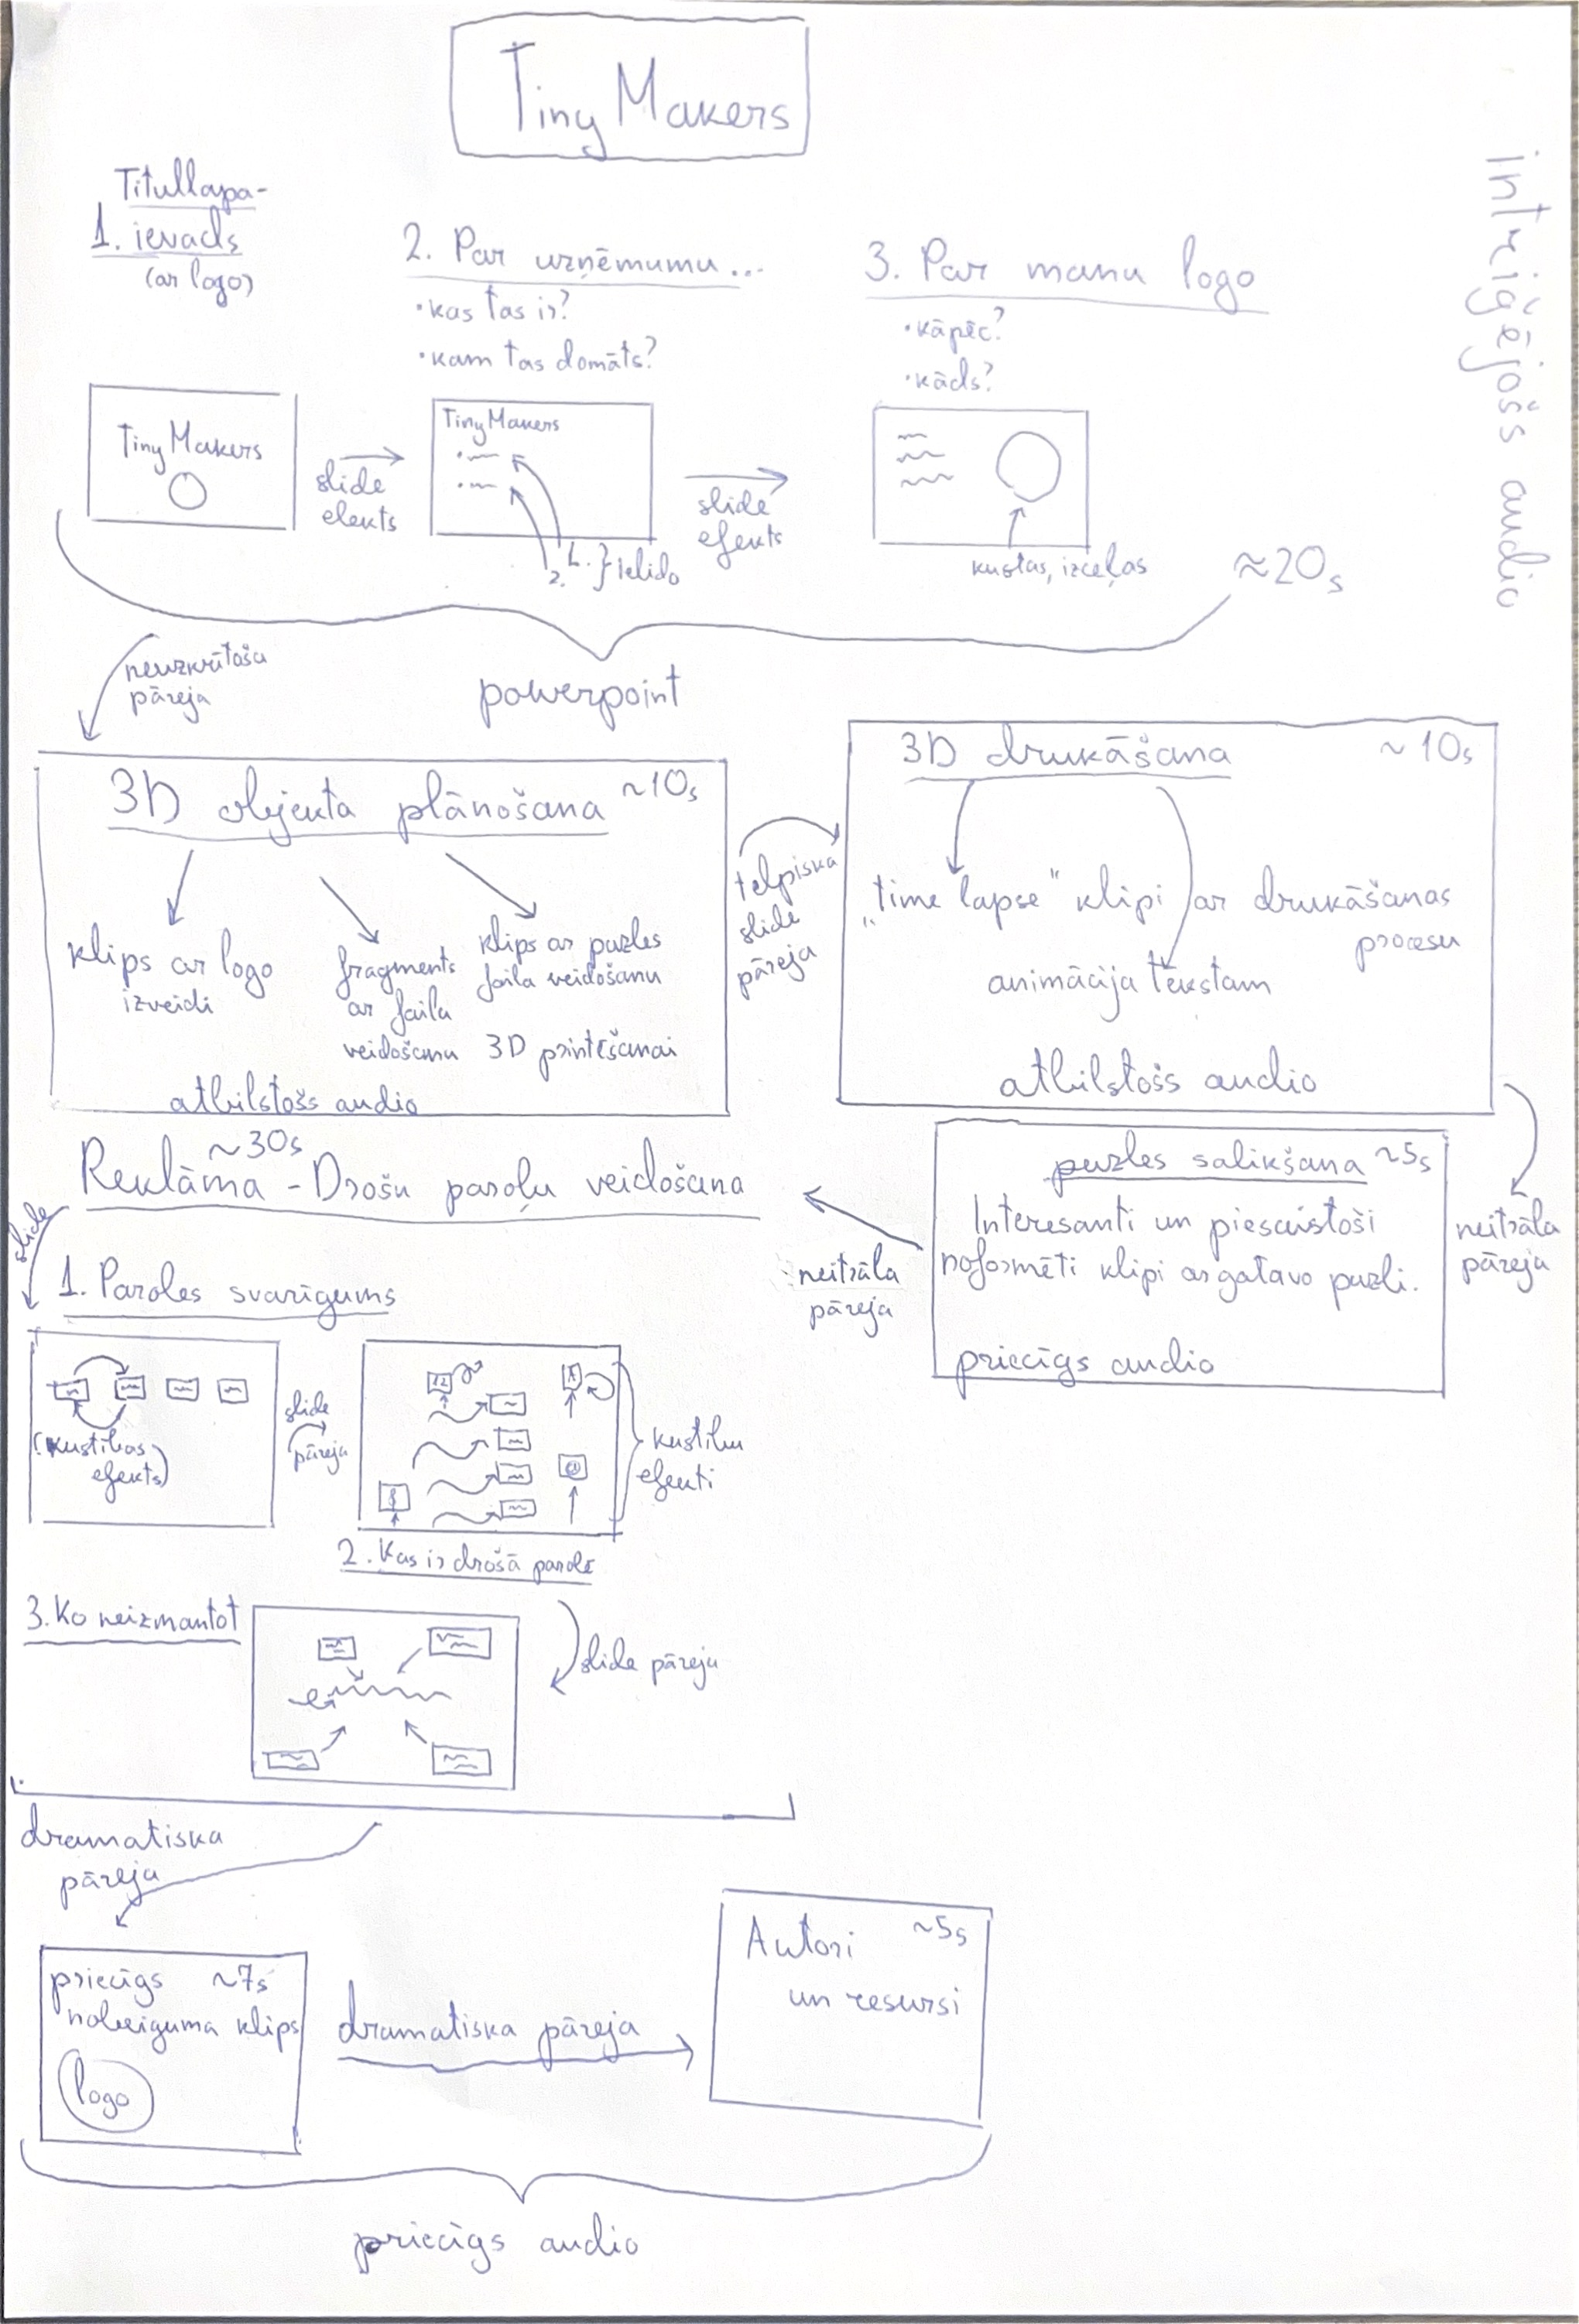 Tiny Makers
Titullapa-
1. ievads
(ar logo)
2. Par uzņēmumu...
• kas tas ir?
• kam tas domāts?
3. Par manu logo
• kāpēc?
• kāds?
intriģējošs audio
Tiny Makers
slide
efekts
Tiny Makers
1.
2. } ielido
slide
efekts
kustas, izceļas
≈20s
powerpoint
neuzkrītoša
pāreja
3D objekta plānošana ~10s
klips ar logo
izveidi
fragments
ar faila
veidošanu
klips ar puzles
faila veidošanu
3D printēšanai
atbilstošs audio
telpiska
slide
pāreja
3D drukāšana ~10s
„time lapse" klipi ar drukāšanas
procesu
animācija tekstam
atbilstošs audio
neitrāla
pāreja
puzles salikšana ~5s
Interesanti un piesaistoši
noformēti klipi ar gatavo puzli.
priecīgs audio
neitrāla
pāreja
~30s
Reklāma - Drošu paroļu veidošana
slide
1. Paroles svarīgums
(kustības
efekts)
slide
pāreja
kustību
efekti
2. Kas ir droša parole
3. Ko neizmantot
slide pāreja
dramatiska
pāreja
priecīgs ~7s
nobeiguma klips
logo
dramatiska pāreja
Autori ~5s
un resursi
priecīgs audio